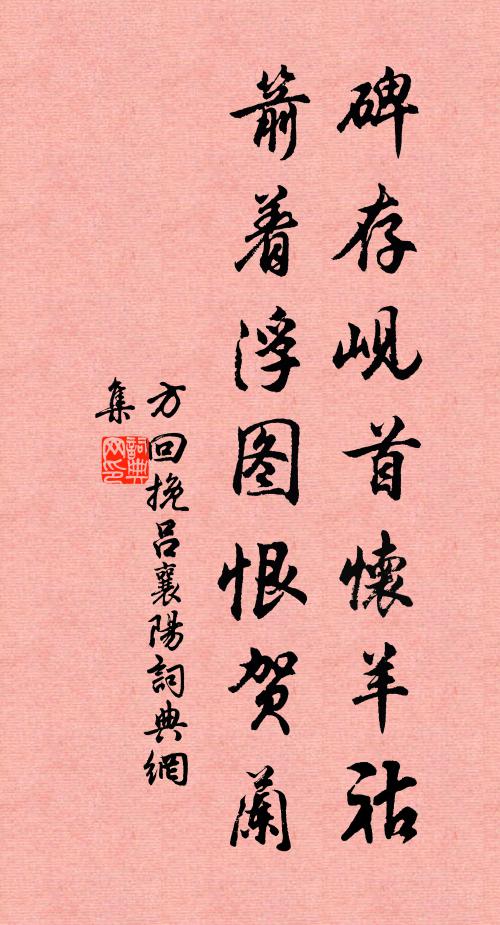 碑存岘首懷羊祜
箭着浮图恨贺蘭
方回挽吕襄陽詞典網
集
詞典网印